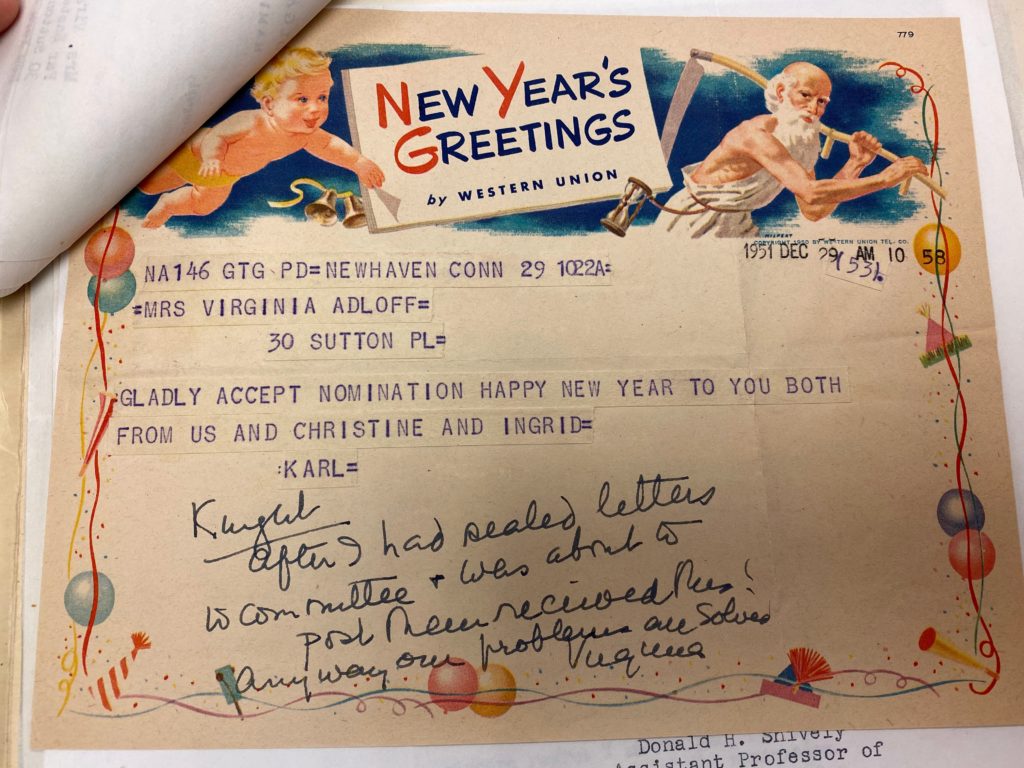 779
NEW YEAR'S
GREETINGS
by WESTERN UNION
HILPERT
COPYRIGHT 1950 BY WESTERN UNION TEL. CO.
1951 DEC 29 AM 10 58
NA146 GTG PD=NEWHAVEN CONN 29 1022A=
=MRS VIRGINIA ADLOFF=
30 SUTTON PL=
GLADLY ACCEPT NOMINATION HAPPY NEW YEAR TO YOU BOTH
FROM US AND CHRISTINE AND INGRID=
:KARL=
after I had sealed letters
to committee + was about to
post them received this!
Anyway our problems are solved
Donald H. Shively
Assistant Professor of